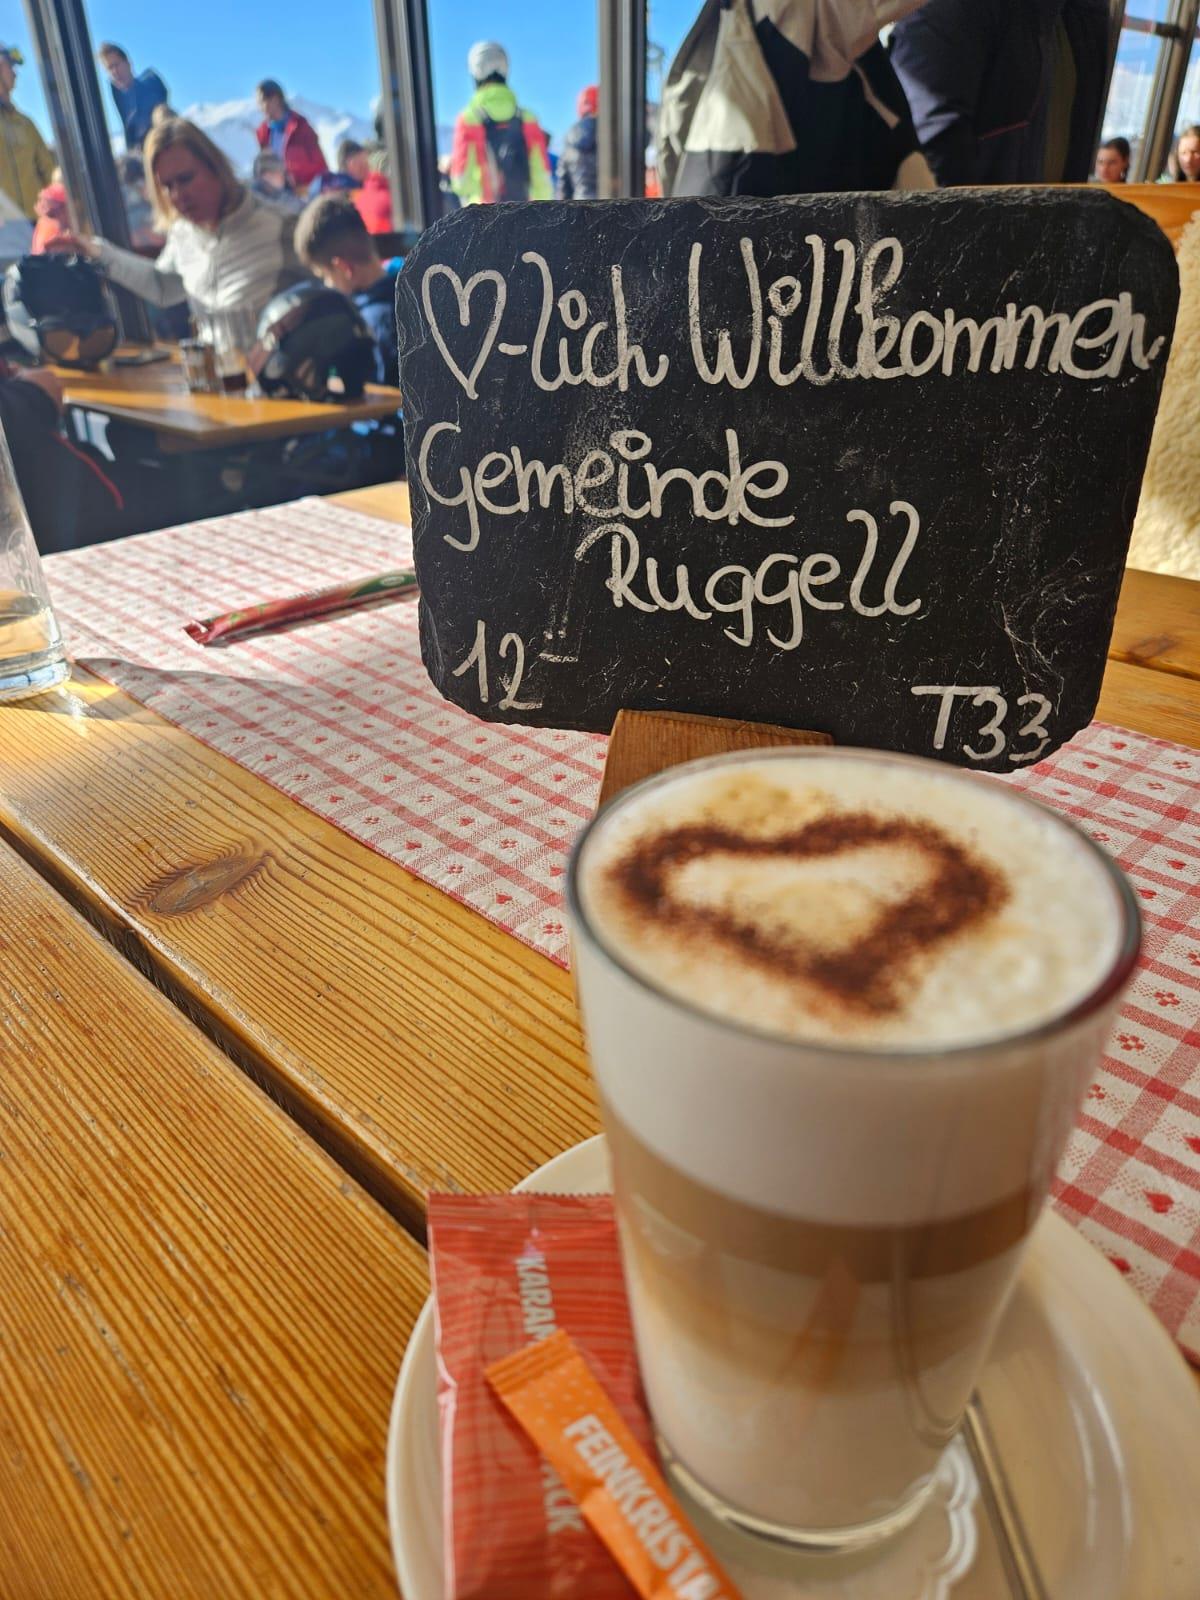 ♡-lich Willkommen
Gemeinde
Ruggell
12-
T33
KARAM
FEINKRISTA